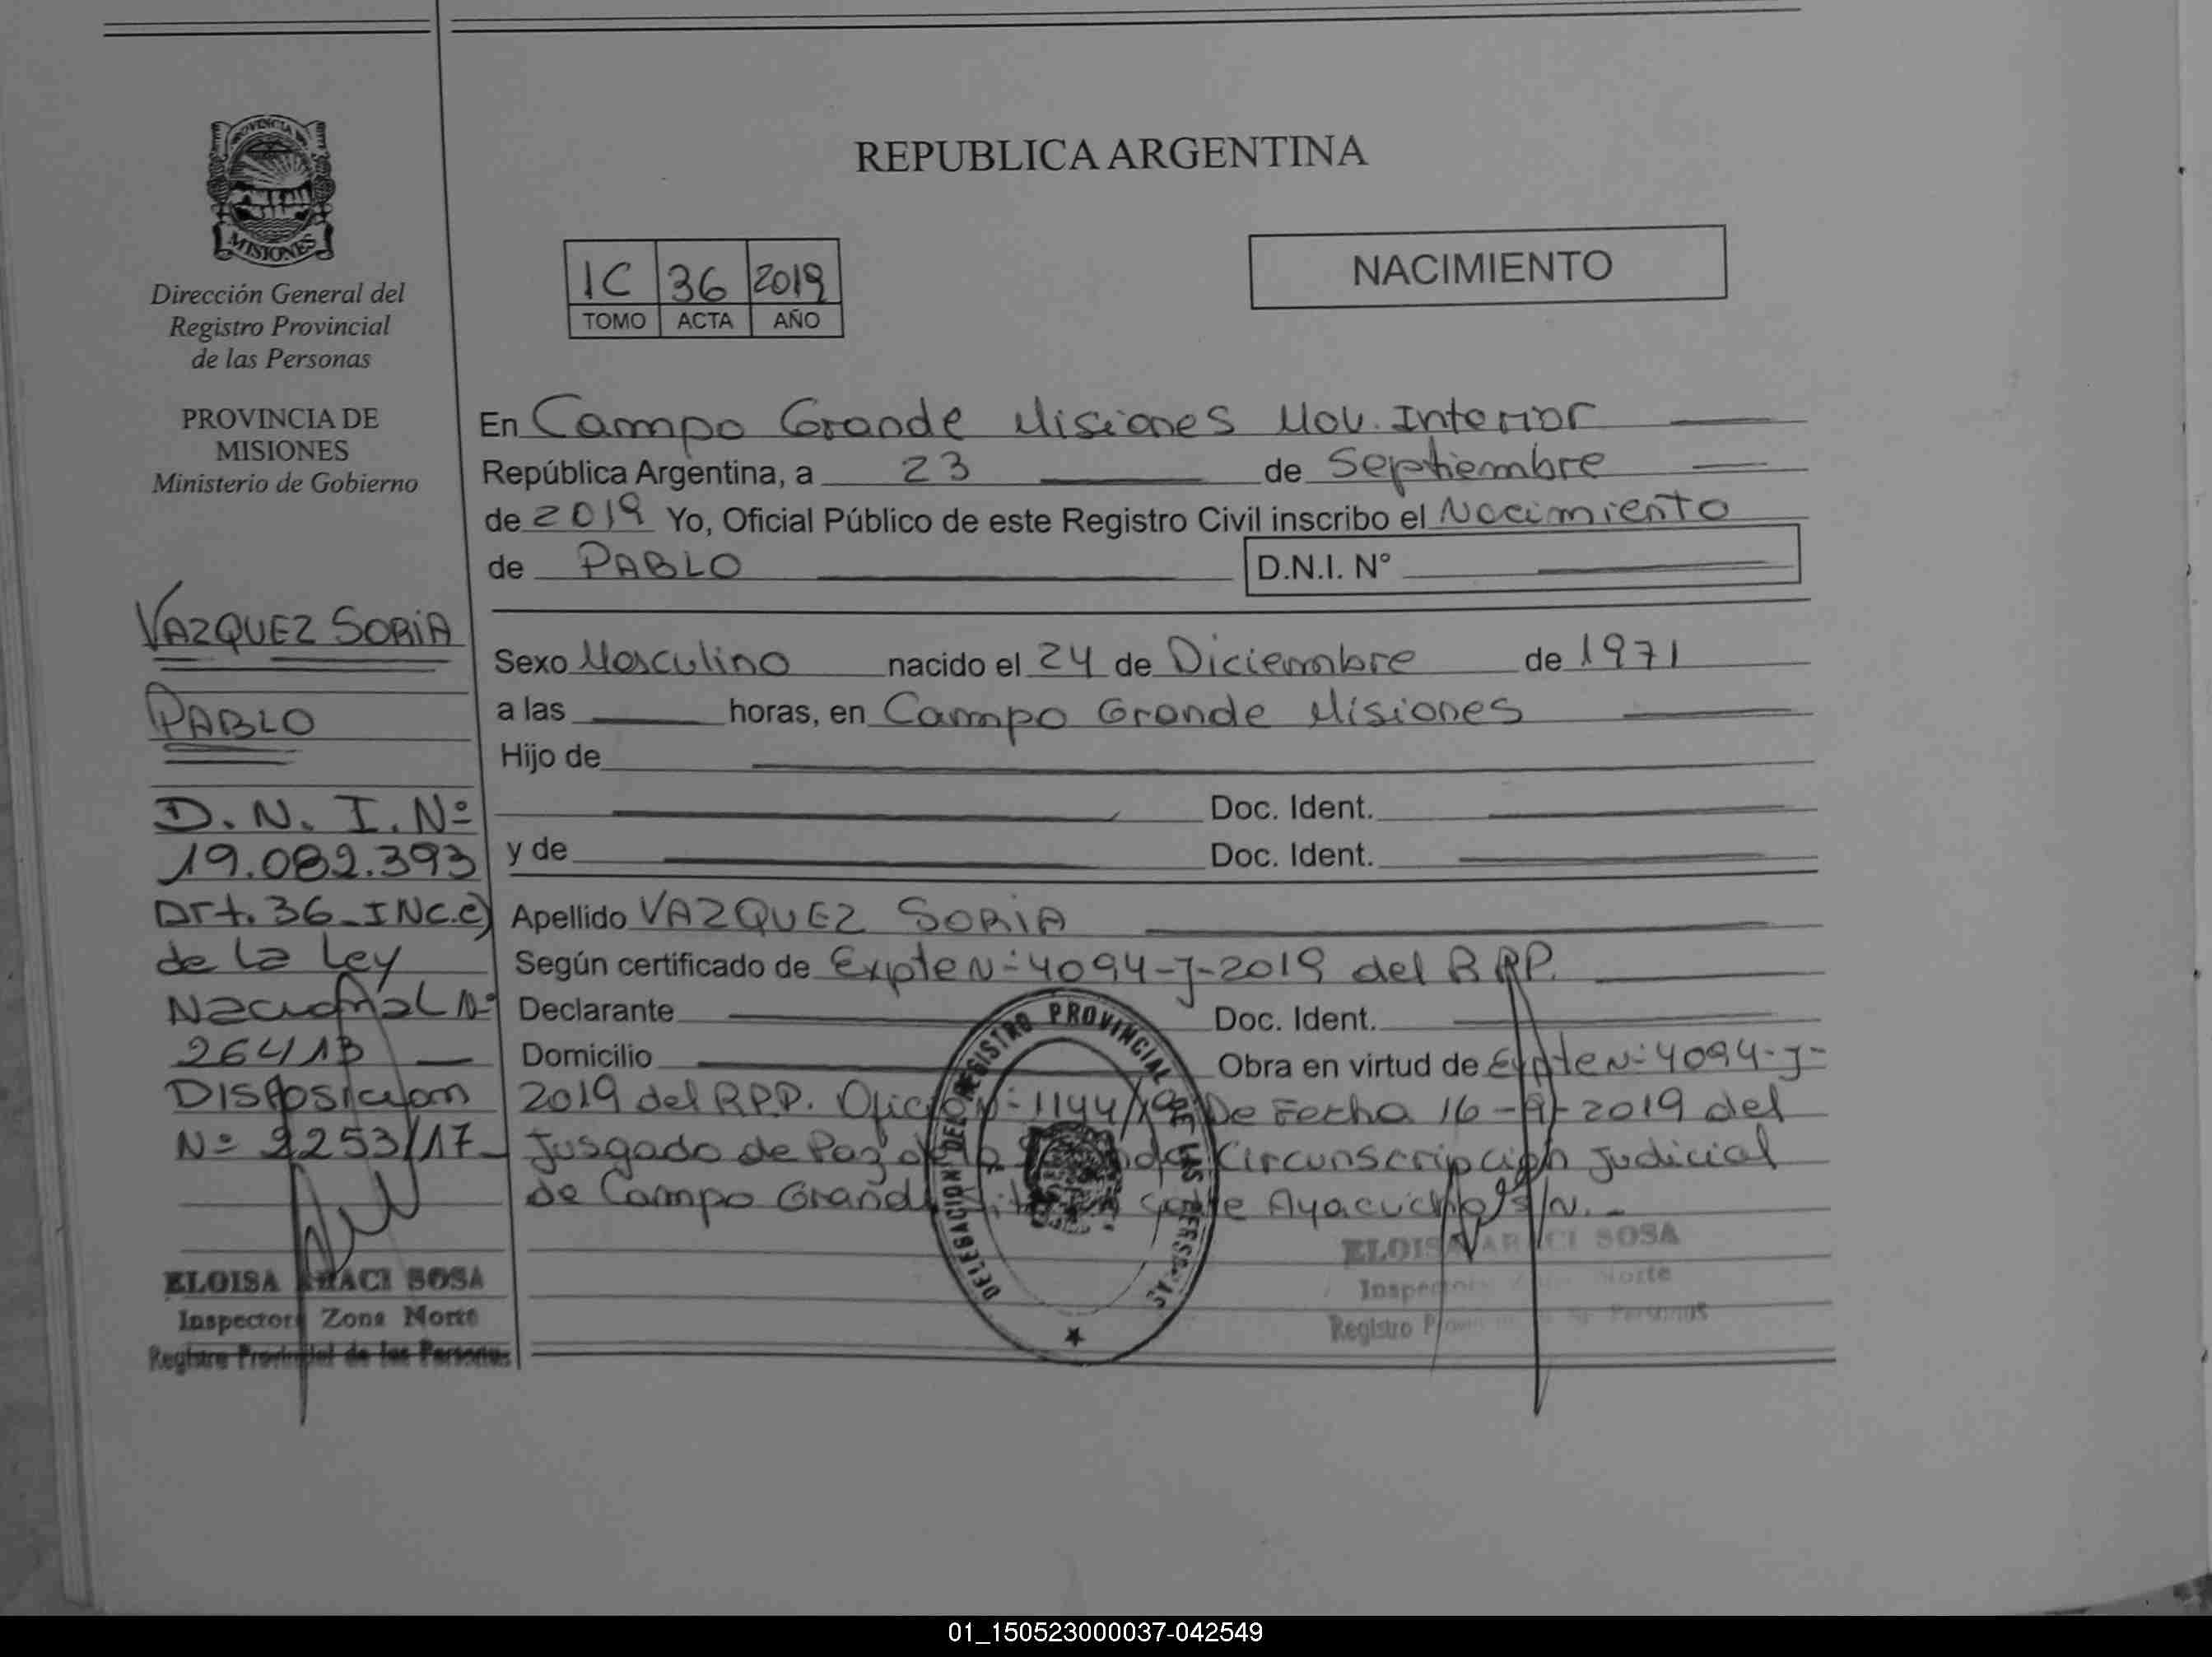 PROVINCIA DE
MISIONES
Dirección General del
Registro Provincial
de las Personas
PROVINCIA DE
MISIONES
Ministerio de Gobierno
VAZQUEZ SORIA
PABLO
D.N.I. Nº
19.082.393
Art. 36-INC.C)
de la Ley
Nacional Nº
26413 —
DISPOSICION
Nº 2253/17-
ELOISA ARACI SOSA
Inspectora Zona Norte
Registro Provincial de las Personas
REPUBLICA ARGENTINA
IC 36 2019
TOMO ACTA AÑO
NACIMIENTO
En Campo Grande Misiones Mov. Interior
República Argentina, a 23 de Septiembre
de 2019 Yo, Oficial Público de este Registro Civil inscribo el Nacimiento
de PABLO D.N.I. Nº
Sexo Masculino nacido el 24 de Diciembre de 1971
a las horas, en Campo Grande Misiones
Hijo de
Doc. Ident.
y de Doc. Ident.
Apellido VAZQUEZ SORIA
Según certificado de Expte Nº 4094-J-2019 del RPP.
Declarante Doc. Ident.
Domicilio Obra en virtud de Expte Nº 4094-J-
2019 del RPP. Oficio Nº 1144/19 De Fecha 16-9-2019 del
Jusgado de Paz de la Circunscripción Judicial
de Campo Grande sobre Ayacucho S/N.-
DELEGACION DEL REGISTRO PROVINCIAL DE LAS PERSONAS
ELOISA ARACI SOSA
Inspectora Zona Norte
Registro Provincial de las Personas
01_150523000037-042549